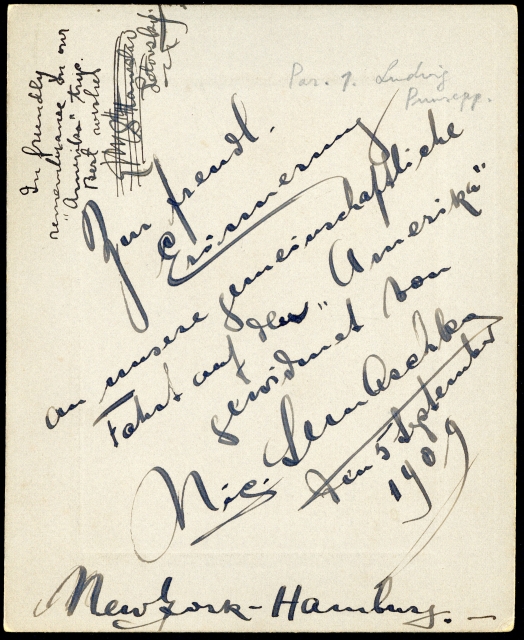 In friendly
remembrance on our
"Amerika" trip.
Best wishes
Par. 1. Ludvig
Punsepp.
Zur freudl.
Erinnerung
an unsere gemeinschaftliche
Fahrt auf der "Amerika"
gewidmet von
Nic.
den 5 September
1909
New York - Hamburg. -